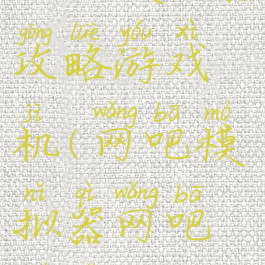 gōng lüè yóu xì
攻略游戏
jī wǎng bā mó
机(网吧模
nǐ qì wǎng bā
拟器网吧